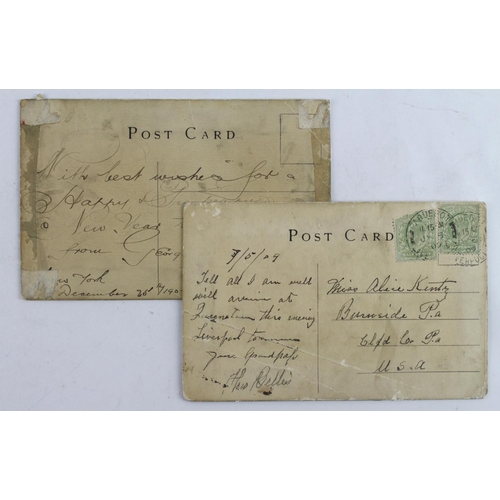 POST CARD
With best wishes for a
Happy &
New Year
from
York
December 26th
POST CARD
/5/09
Tell all I am well
will arrive at
Queenstown this evening
Liverpool
your Grandpap
Miss Alice Kintz
Burnside Pa
Clfd Co. Pa
U.S.A